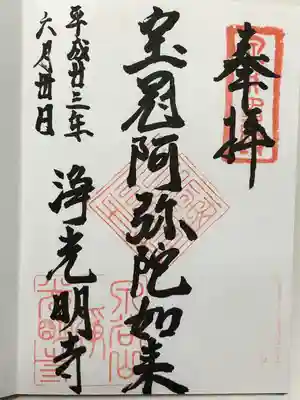 奉拝
宝冠阿弥陀如来
平成廿三年
六月卅日
浄光明寺